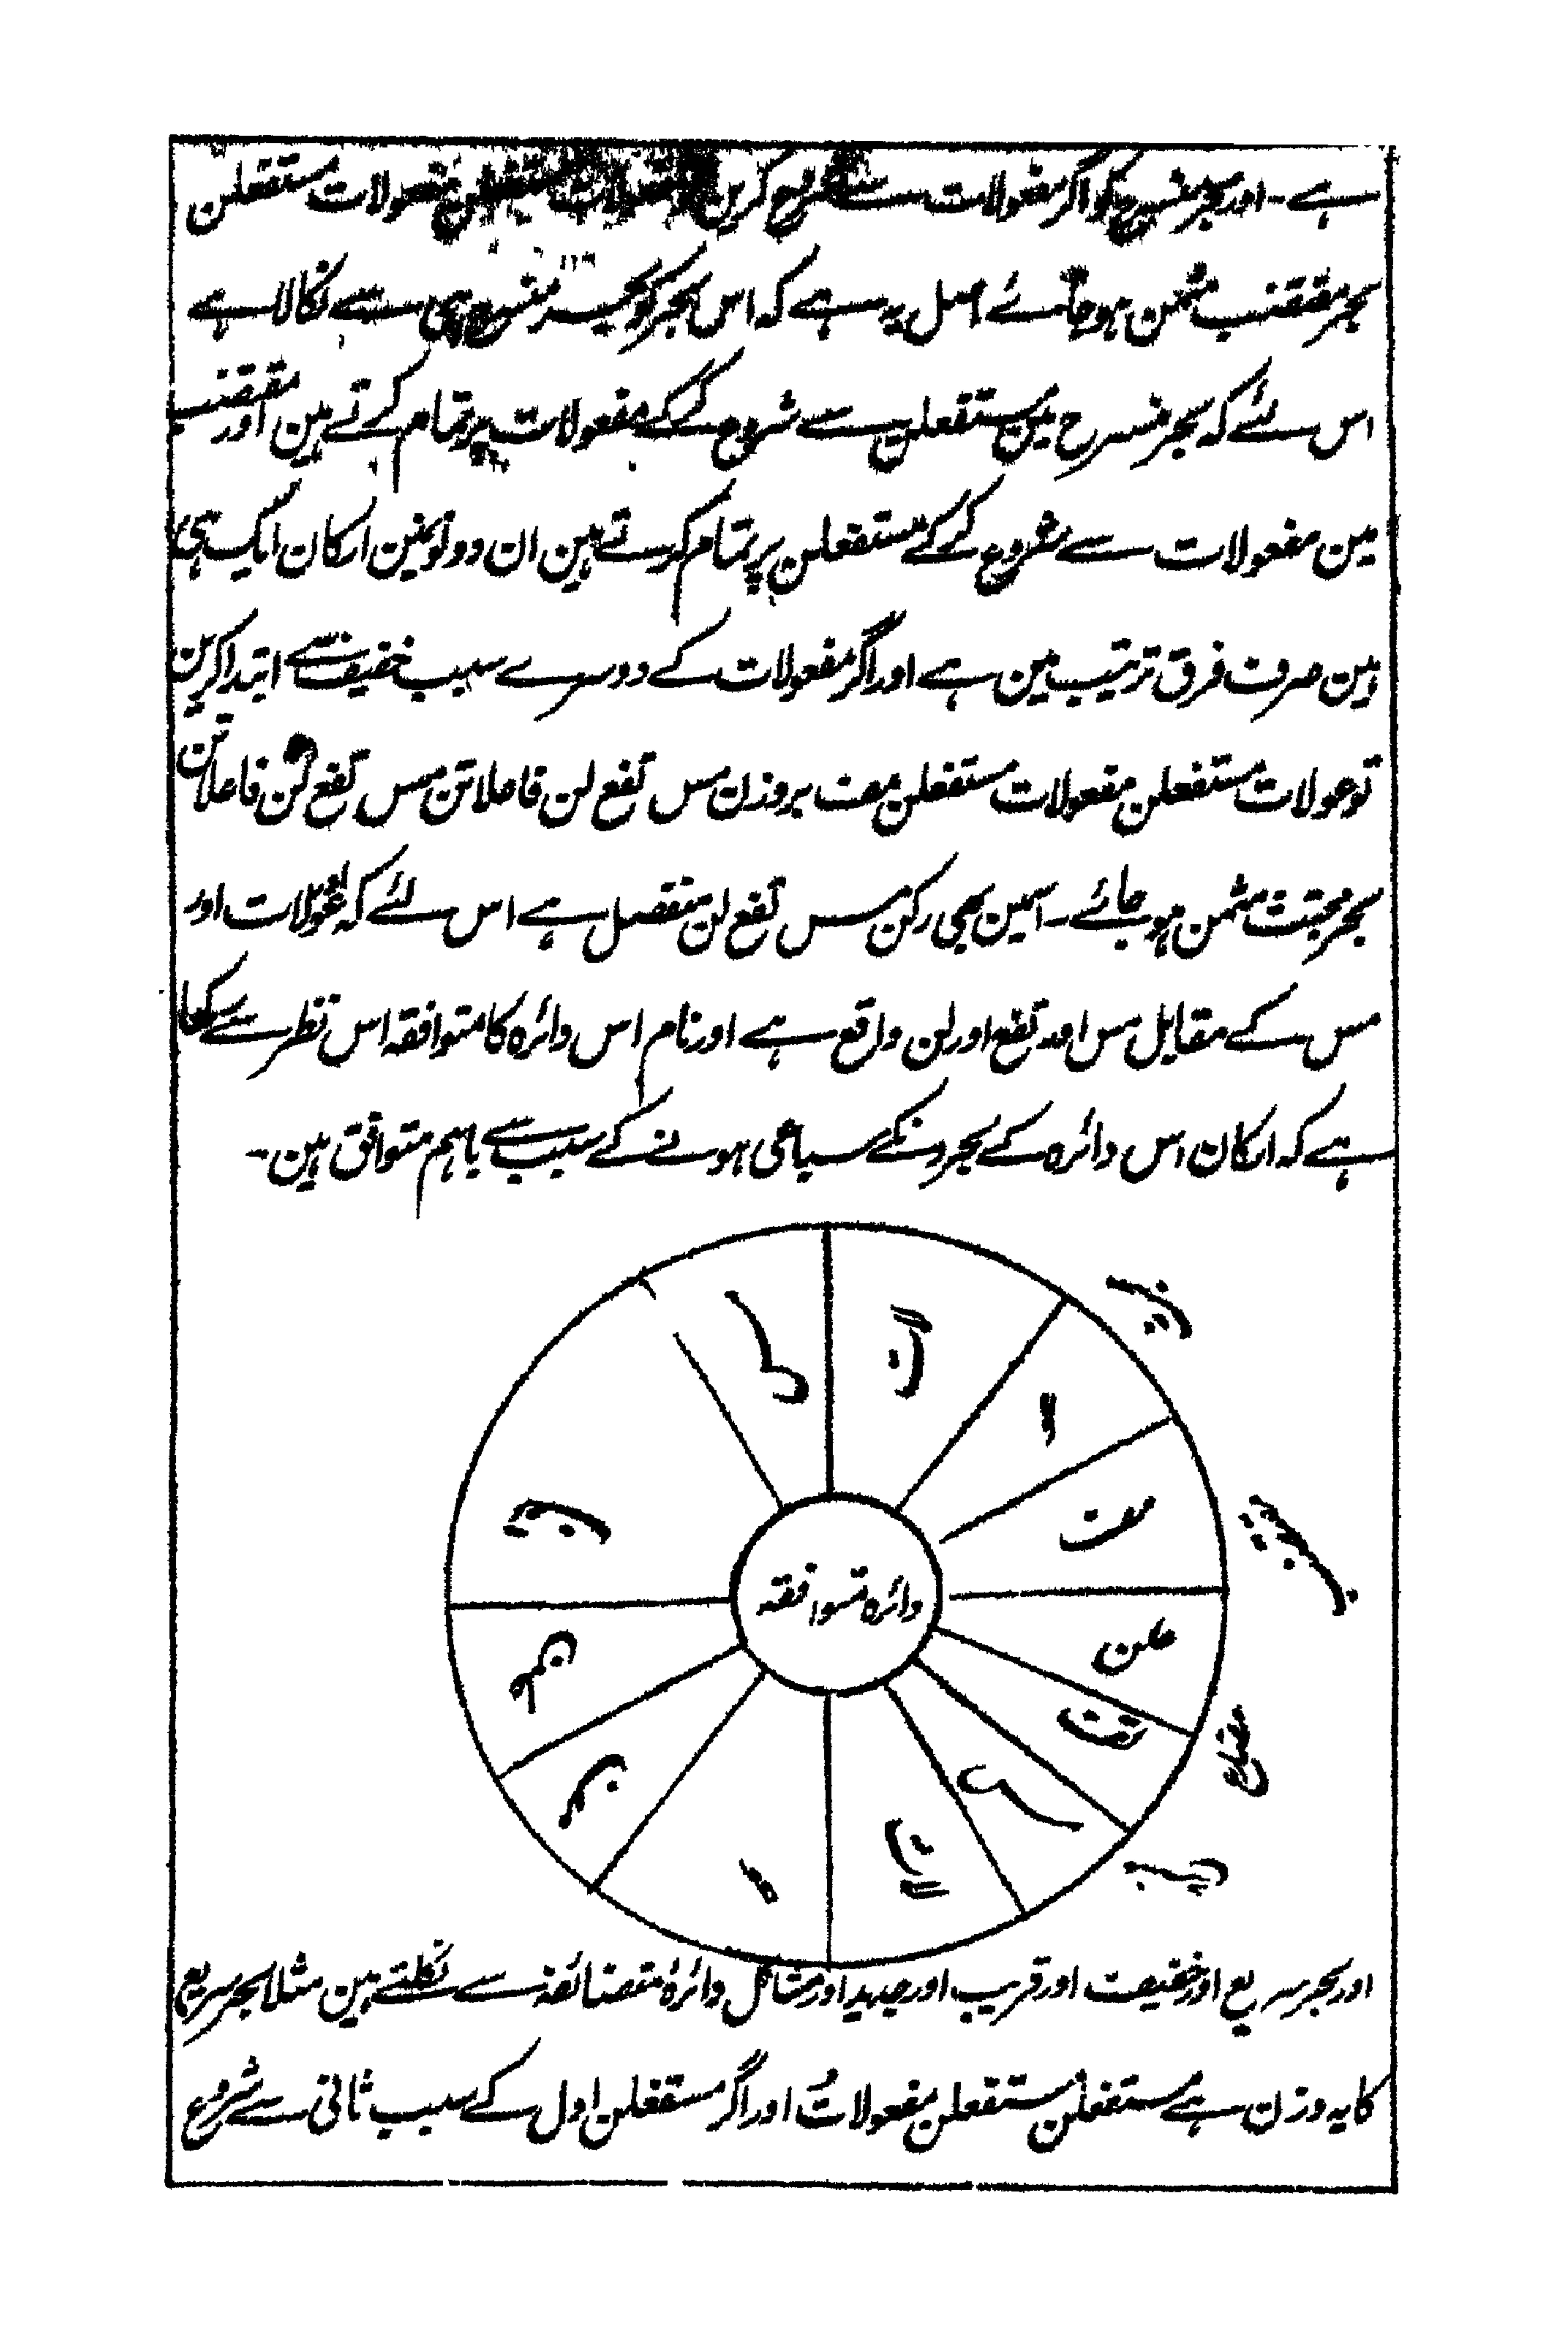 ہے۔ اور بحر منسرح کو اگر مفعولات سے شروع کرین مفعولات مستفعلن مفعولات مستفعلن
بحر مقتضب مثمن ہوجائے اصل یہ ہے کہ اس بحر کو بحر منسرح ہی سے نکالا ہے
اس لئے کہ بحر منسرح مین مستفعلن سے شروع کرکے مفعولات پر تمام کرتے ہین اور مقتضب
مین مفعولات سے شروع کرکے مستفعلن پر تمام کرتے ہین ان دونونمین ارکان ایک ہی
ہین صرف فرق ترتیب مین ہے اور اگر مفعولات کے دوسرے سبب خفیف سے ابتدا کرین
تو عولات مستفعلن مفعولات مستفعلن مف بروزن مس تفع لن فاعلاتن مس تفع لن فاعلاتن
بحر مجتث مثمن ہوجائے۔ اسمین بھی رکن مس تفع لن منفصل ہے اس لئے کہ عولات اور
مس کے مقابل مس اور تفع اور لن واقع ہے اور نام اس دائرہ کا متوافقہ اس نظر سے رکھا
ہے کہ ارکان اس دائرہ کے بحرونکے سباعی ہونے کے سبب سے باہم متوافق ہین۔
لات
مف
علن
تف
مس
لات
دائرہ متوافقہ
اور بحر سریع اور خفیف اور قریب اور جدید اور مشاکل دائرۂ متضائفہ سے نکلتے ہین مثلا بحر سریع
کا یہ وزن ہے مستفعلن مستفعلن مفعولاتُ اور اگر مستفعلن اول کے سبب ثانی سے شروع